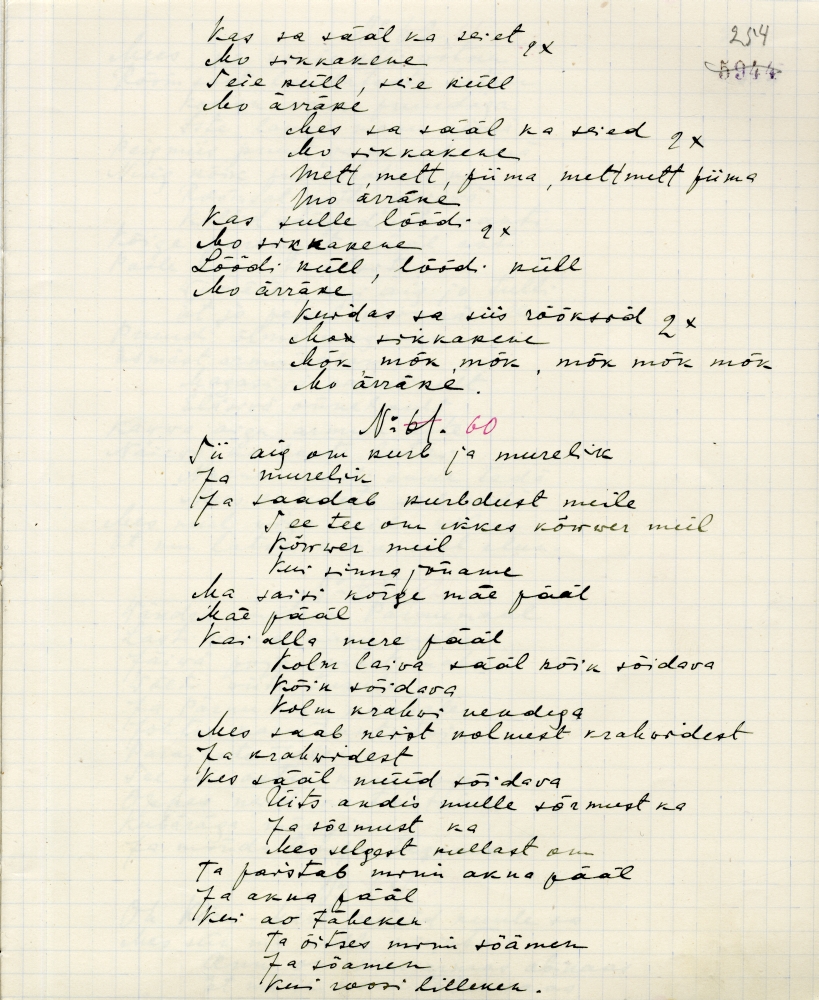 254
5944
Kas sa sääl ka seiet 2x
Mo sikkakene
Seie küll, seie küll
Mo ärräke
Mes sa sääl ka seied 2x
Mo sikkakene
Mett, mett, piima, mettmett piima
Mo ärräke
Kas sulle löödi 2x
Mo sikkakene
Löödi küll, löödi küll
Mo ärräke
Kuidas sa siis rööksid 2x
Mo sikkakene
Mök, mök, mök, mök mök mök
Mo ärräke.
N: 61. 60
Sii aig om kurb ja murelik
Ja murelik
Ja saadab kurbdust meile
See tee om ikkes kõwwer meil
Kõwwer meil
Kui sinna jõuame
Ma saisi kõrge mäe pääl
Mäe pääl
Kai alla mere pääl
Kolm laiva sääl kõik sõidava
Kõik sõidava
Kolm krahwi nendega
Mes saab neist kolmest krahwidest
Ja krahwidest
Kes sääl nüüd sõidava
Üits andis mulle sõrmust ka
Ja sõrmust ka
Mes selgest kullast om
Ta paistab minu akna pääl
Ja akna pääl
Kui ao täheken
Ta õitses minu söämen
Ja söamen
Kui roosi lilleken.